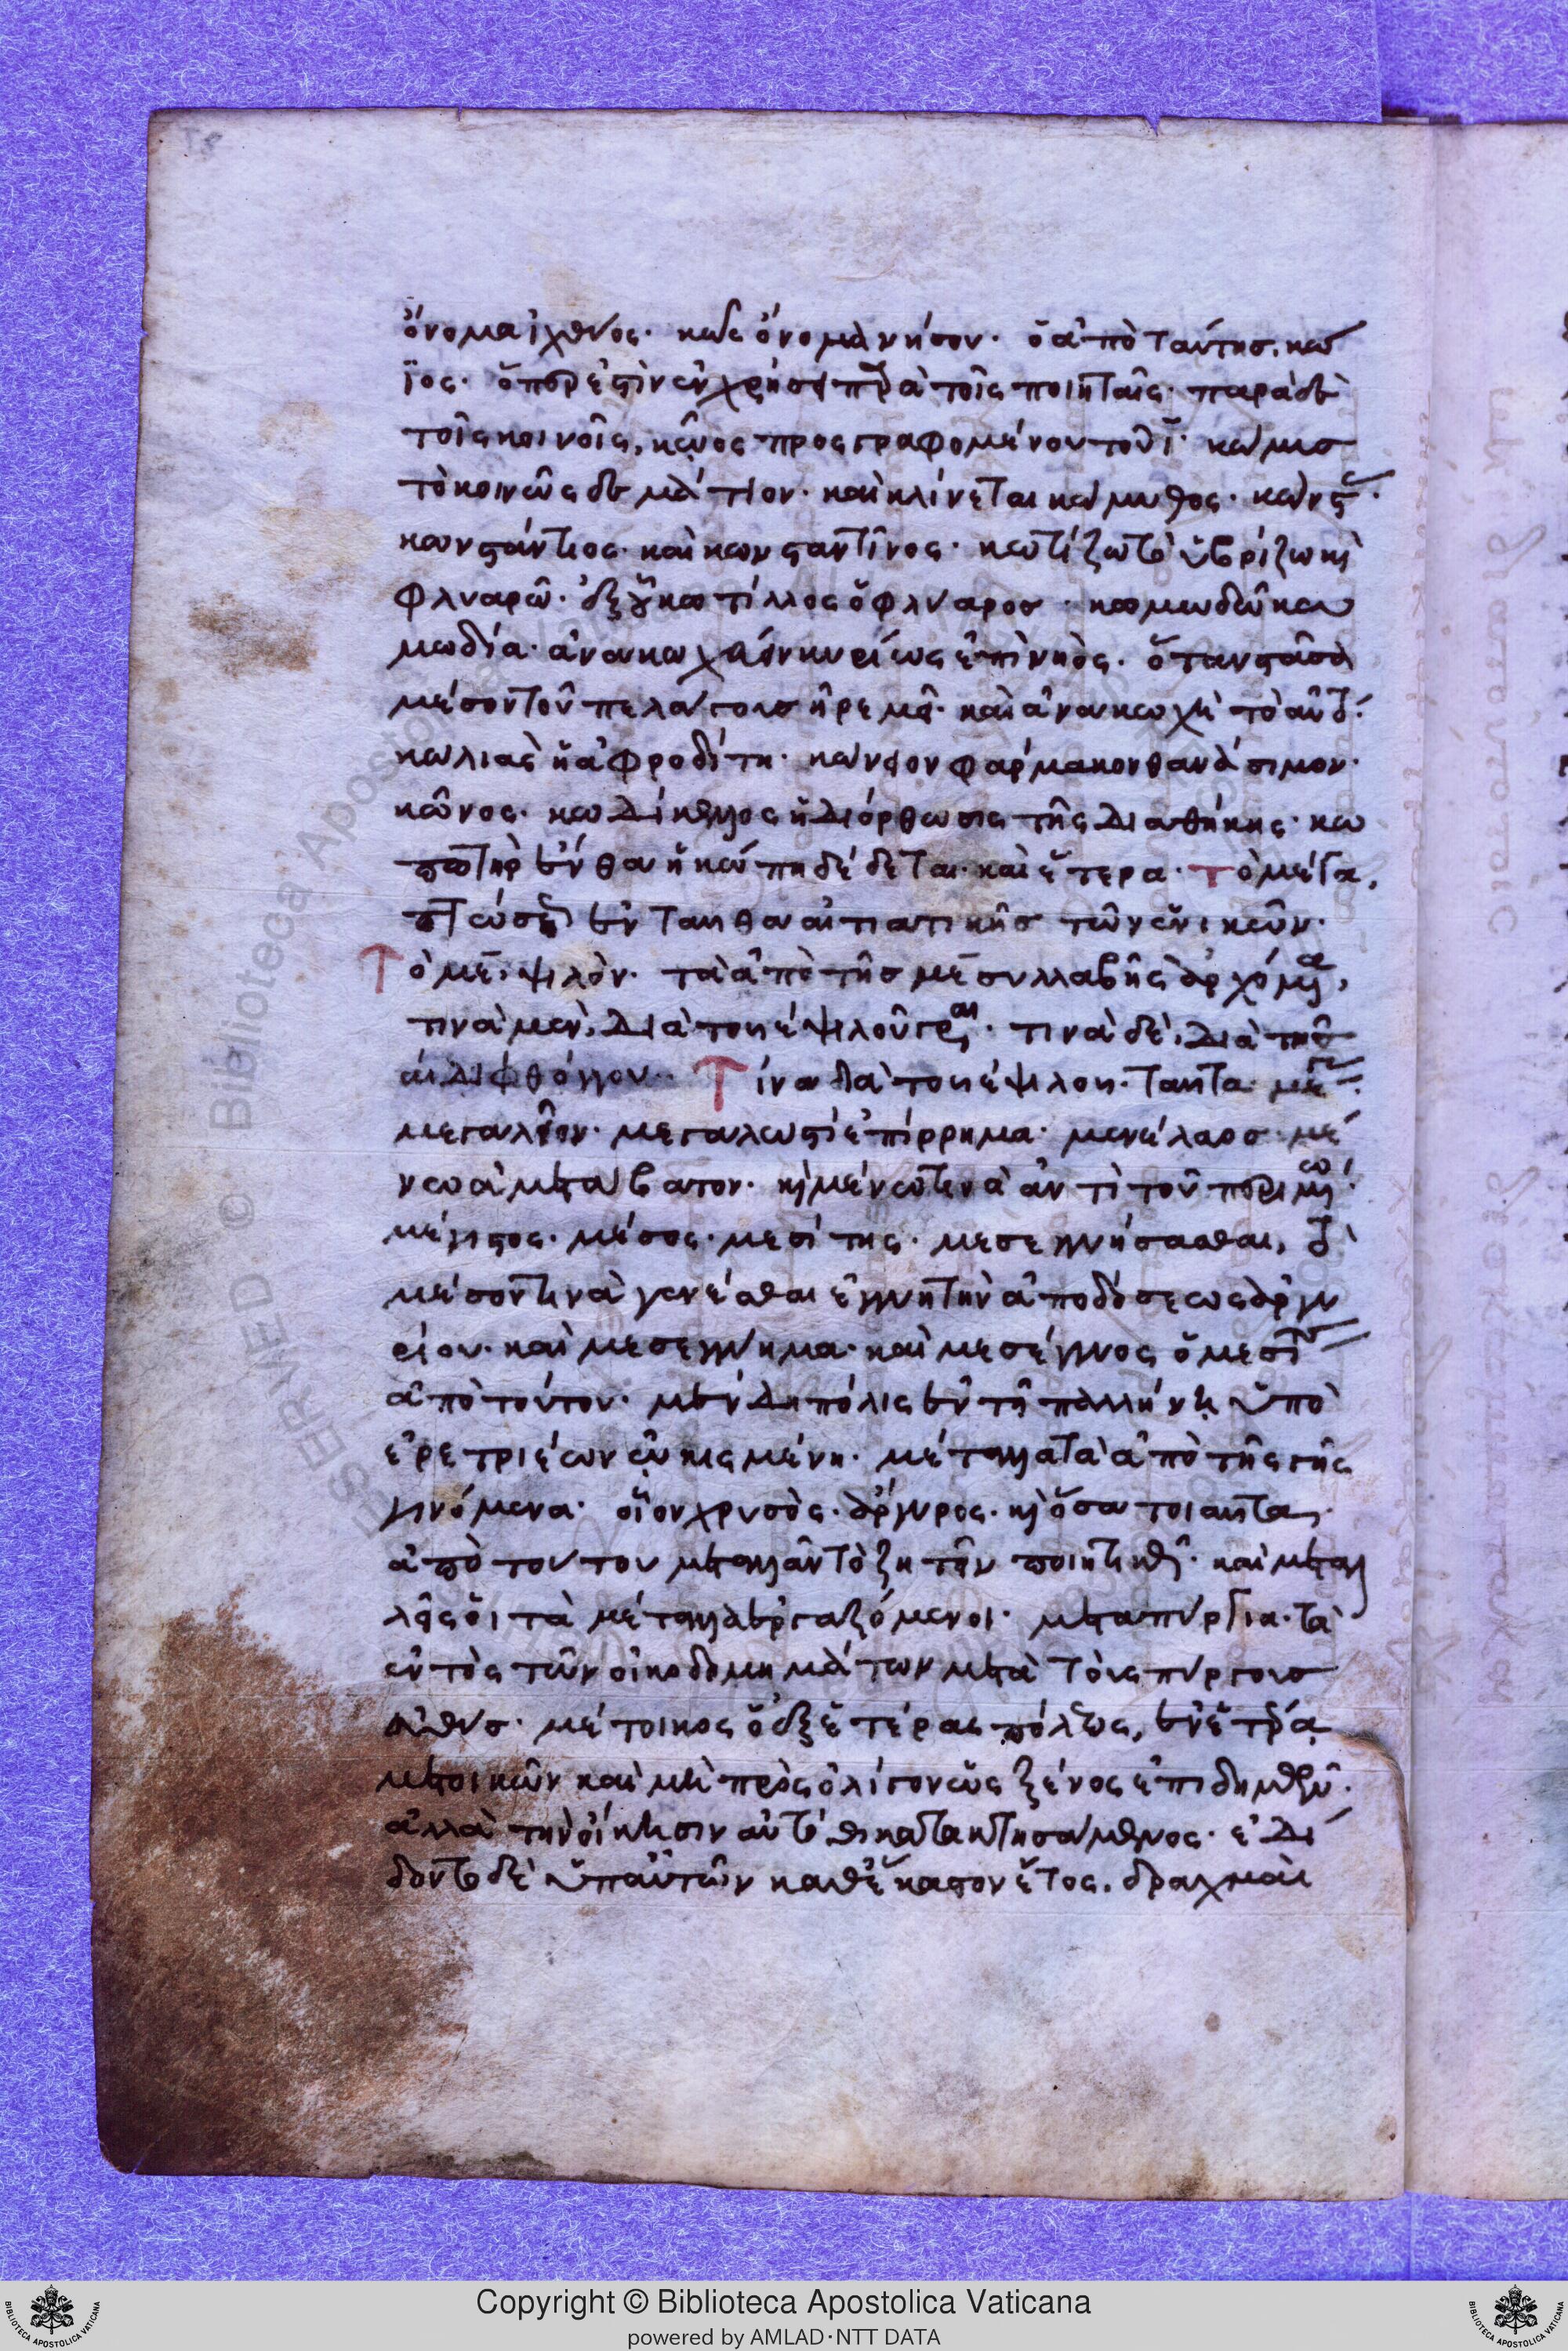 ὄνομα ἰχθύος· κῶς ὄνομα νήσου· ὁ ἀπὸ ταύτης, κώ
ϊος· ὅπερ ἐστὶν ἐν χρήσει παρὰ τοῖς ποιηταῖς· παρὰ δὲ
τοῖς κοινοῖς, κῶος προσγραφομένου τοῦ ϊ· κώμυς
καὶ κλίνεται κώμυθος· κώνστας·
κωνστάντιος· καὶ κωνσταντῖνος· κωτίζω τὸ ὑβρίζω καὶ
φλυαρῶ· ἐξ οὗ κωτίλλος ὁ φλύαρος· κωμωδῶ κω
μωδία· ἀνακωχεύειν κυρίως ἐπὶ νηὸς· ὅταν στᾶσα
μέσον τοῦ πελάγους ἠρεμῆ· καὶ ἀνακωχὴ τὸ αὐτό·
κωλιὰς ἡ ἀφροδίτη· κώνειον φάρμακον θανάσιμον·
κῶνος· κωδίκελλος ἡ διόρθωσις τῆς διαθήκης· κω
πωτὴρ ἔνθα ἡ κώπη δέδεται· καὶ ἕτερα· Τὸ μέγα,
πτώσεως ἐνταῦθα αἰτιατικῆς τῶν ἑνικῶν·
Τὸ με, ψιλὸν· τὰ ἀπὸ τῆς με συλλαβῆς ἀρχόμενα,
τινὰ μὲν, διὰ τοῦ ε ψιλοῦ γράφεται· τινὰ δὲ, διὰ τῆς
αι διφθόγγου· Τίνα διὰ τοῦ ε ψιλοῦ· ταῦτα· μέγας·
μεγαλεῖον· μεγαλωστί ἐπίρρημα· μενέλαος· μέ
νω ἀμετάβατον· καὶ μένω τινὰ ἀντὶ τοῦ περιμένω·
μέγιστος· μέσος· μεσίτης· μεσεγγυήσασθαι, τὸ
μέσον τινὰ γενέσθαι ἐγγυητὴν ἀποδόσεως ἀργυ
ρίου· καὶ μεσεγγύημα· καὶ μεσέγγυος ὁ μεσίτης
ἀπὸ τούτου· μένδη πόλις ἐν τῇ παλλήνη ὑπὸ
ἐρετριέων ᾠκισμένη· μέταλλα τὰ ἀπὸ τῆς γῆς
γινόμενα· οἷον χρυσὸς· ἄργυρος· καὶ ὅσα τοιαῦτα,
ἀπὸ τούτου μεταλλᾶν τὸ ζητεῖν ποιητικῶς· καὶ μεταλ
λεῖς οἱ τὰ μέταλλα ἐργαζόμενοι· μεταπύργια· τὰ
ἐντὸς τῶν οἰκοδομημάτων μετὰ τοὺς πύργους
εὐθύς· μέτοικος ὁ ἐξ ἑτέρας πόλεως, ἐν ἑτέρα
μετοικῶν καὶ μὴ πρὸς ὀλίγον ὡς ξένος ἐπιδημῶν·
ἀλλὰ τὴν οἴκησιν αὐτόθι καταστησάμενος· ἐδί
δοντο δὲ ὑπ' αὐτῶν καθ' ἕκαστον ἔτος, δραχμαὶ